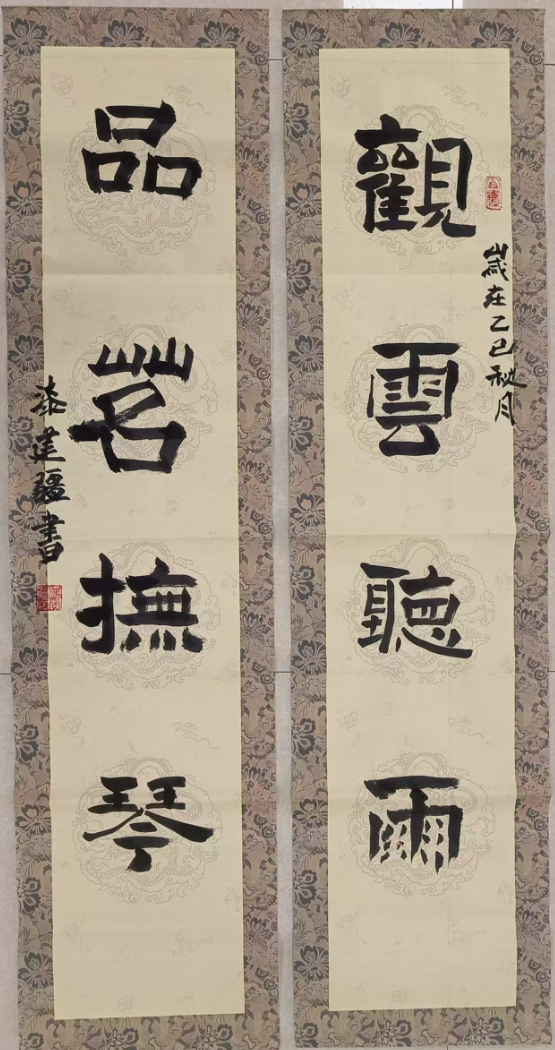 歲在乙巳秋月
觀雲聽雨
品茗撫琴
建疆書